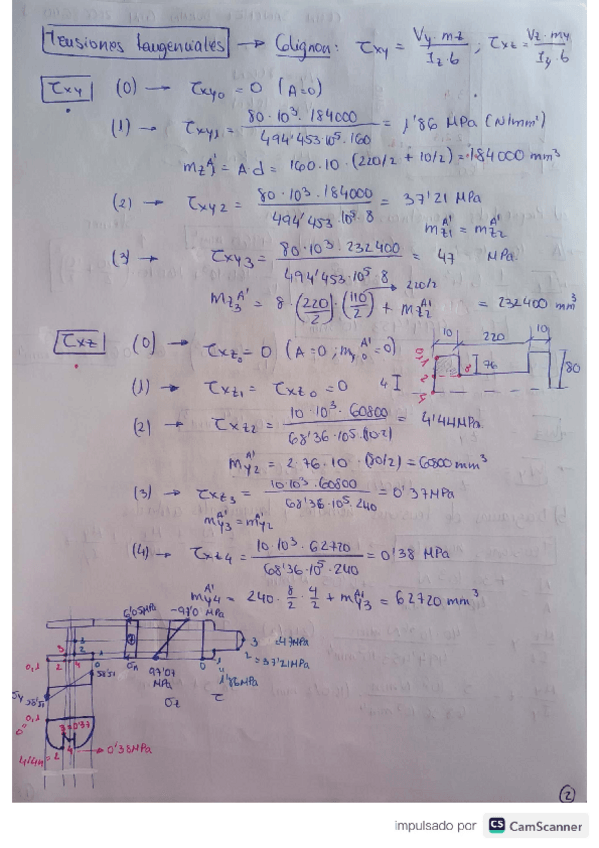 Tensiones tangenciales → Colignon: τxy = Vy · mz / Iz · b ; τxz = Vz · my / Iy · b
τxy (0) → τxy0 = 0 (A=0)
(1) → τxy1 = 80 · 10³ · 184000 / 494'453 · 10⁵ · 160 = 1'86 MPa (N/mm²)
mz1^A' = A · d = 160 · 10 · (220/2 + 10/2) = 184000 mm³
(2) → τxy2 = 80 · 10³ · 184000 / 494'453 · 10⁵ · 8 = 37'21 MPa
mz1^A' = mz2^A'
(3) → τxy3 = 80 · 10³ · 232400 / 494'453 · 10⁵ · 8 = 47 MPa
mz3^A' = 8 · (220/2) · (110/2) + mz2^A' = 232400 mm³
220/2
τxz (0) → τxz0 = 0 (A=0; my0^A' = 0)
10 220 10
0,1 2 3 8 76 80
4
(1) → τxz1 = τxz0 = 0
(2) → τxz2 = 10 · 10³ · 60800 / 68'36 · 10⁵ · (10·2) = 4'44 MPa
my2^A' = 2 · 76 · 10 · (80/2) = 60800 mm³
(3) → τxz3 = 10 · 10³ · 60800 / 68'36 · 10⁵ · 240 = 0'37 MPa
my3^A' = my2^A'
(4) → τxz4 = 10 · 10³ · 62720 / 68'36 · 10⁵ · 240 = 0'38 MPa
my4^A' = 240 · 8/2 · 4/2 + my3^A' = 62720 mm³
6'05MPa -97'0 MPa
3 =47MPa
2 =37'21MPa
0,1 3 2 4 2 1 0
97'07 MPa
1'86MPa
58'51
σt τ
0,1
3=0'37
4'44= 2 4 → 0'38MPa
2
impulsado por CS CamScanner